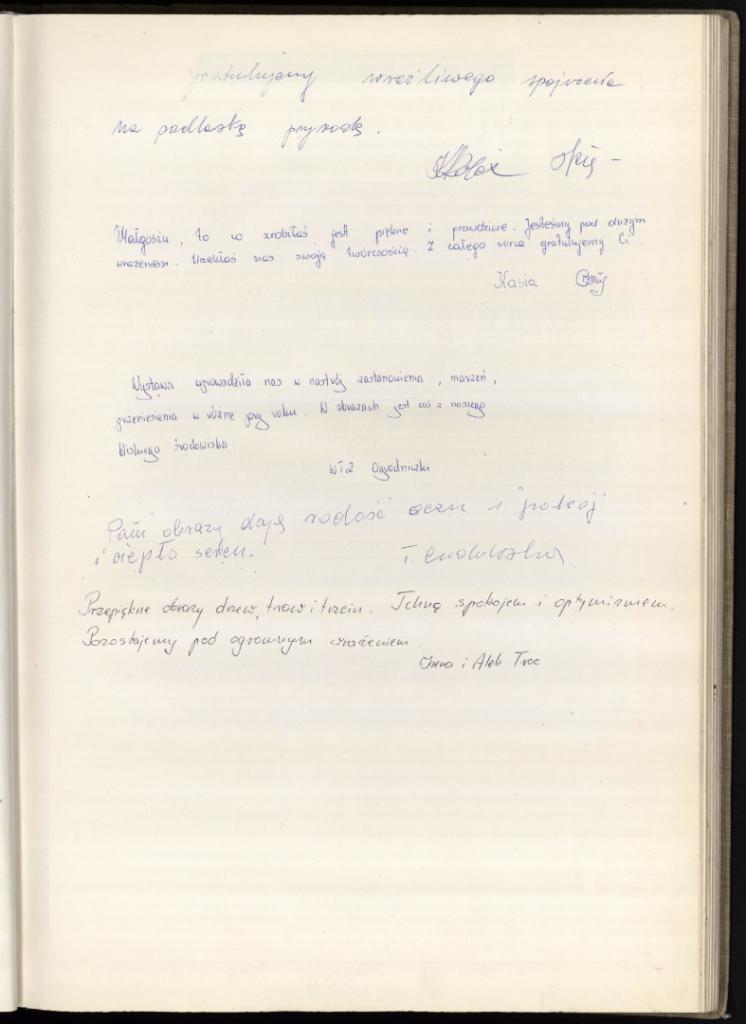 Gratulujemy wrażliwego spojrzenia
na podlaską przyrodę.
Małgosiu, to co zrobiłaś jest piękne i prawdziwe. Jesteśmy pod dużym
wrażeniem. Urzekłaś nas swoją twórczością. Z całego serca gratulujemy Ci.
Kasia
Wystawa wprowadziła nas w nastrój zastanowienia, marzeń,
przeniesienia w różne pory roku. W obrazach jest coś z naszego
bliskiego środowiska.
Ogrodniczki
Pani obrazy dają radość oczu i pokój
i ciepło serca.
T.
Przepiękne obrazy drzew, traw i trzcin. Tchną spokojem i optymizmem.
Pozostajemy pod ogromnym wrażeniem.
Irena i Alek Troc